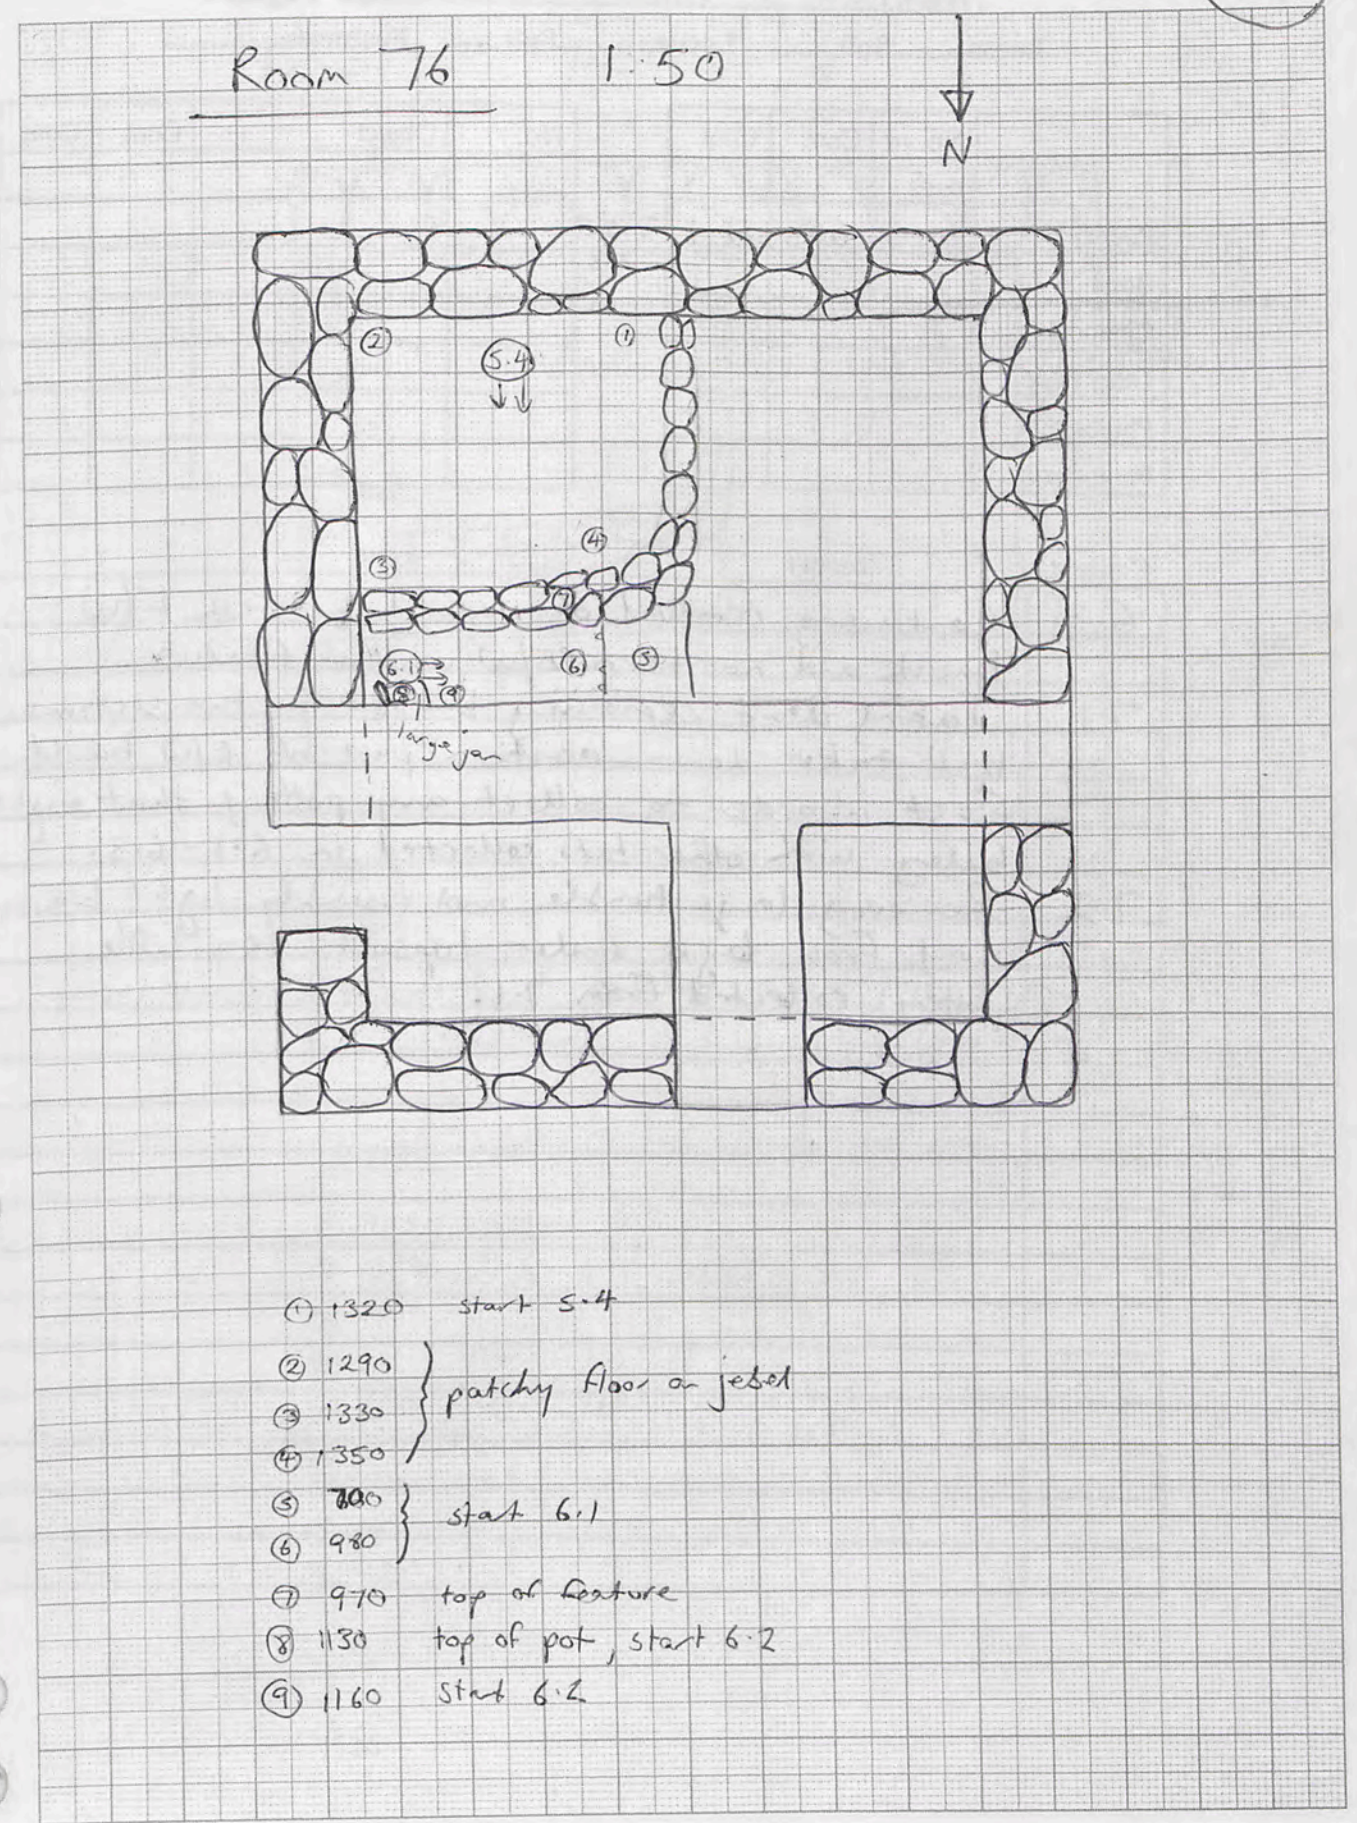 Room 76 1:50
N
② ①
5.4
④
③
⑦
6.1 ⑥ ⑤
⑧ ⑨
large jar
① 1320 start 5.4
② 1290
③ 1330 patchy floor on jebel
④ 1350
⑤
⑥ 980 start 6.1
⑦ 970 top of feature
⑧ 1130 top of pot, start 6.2
⑨ 1160 start 6.2